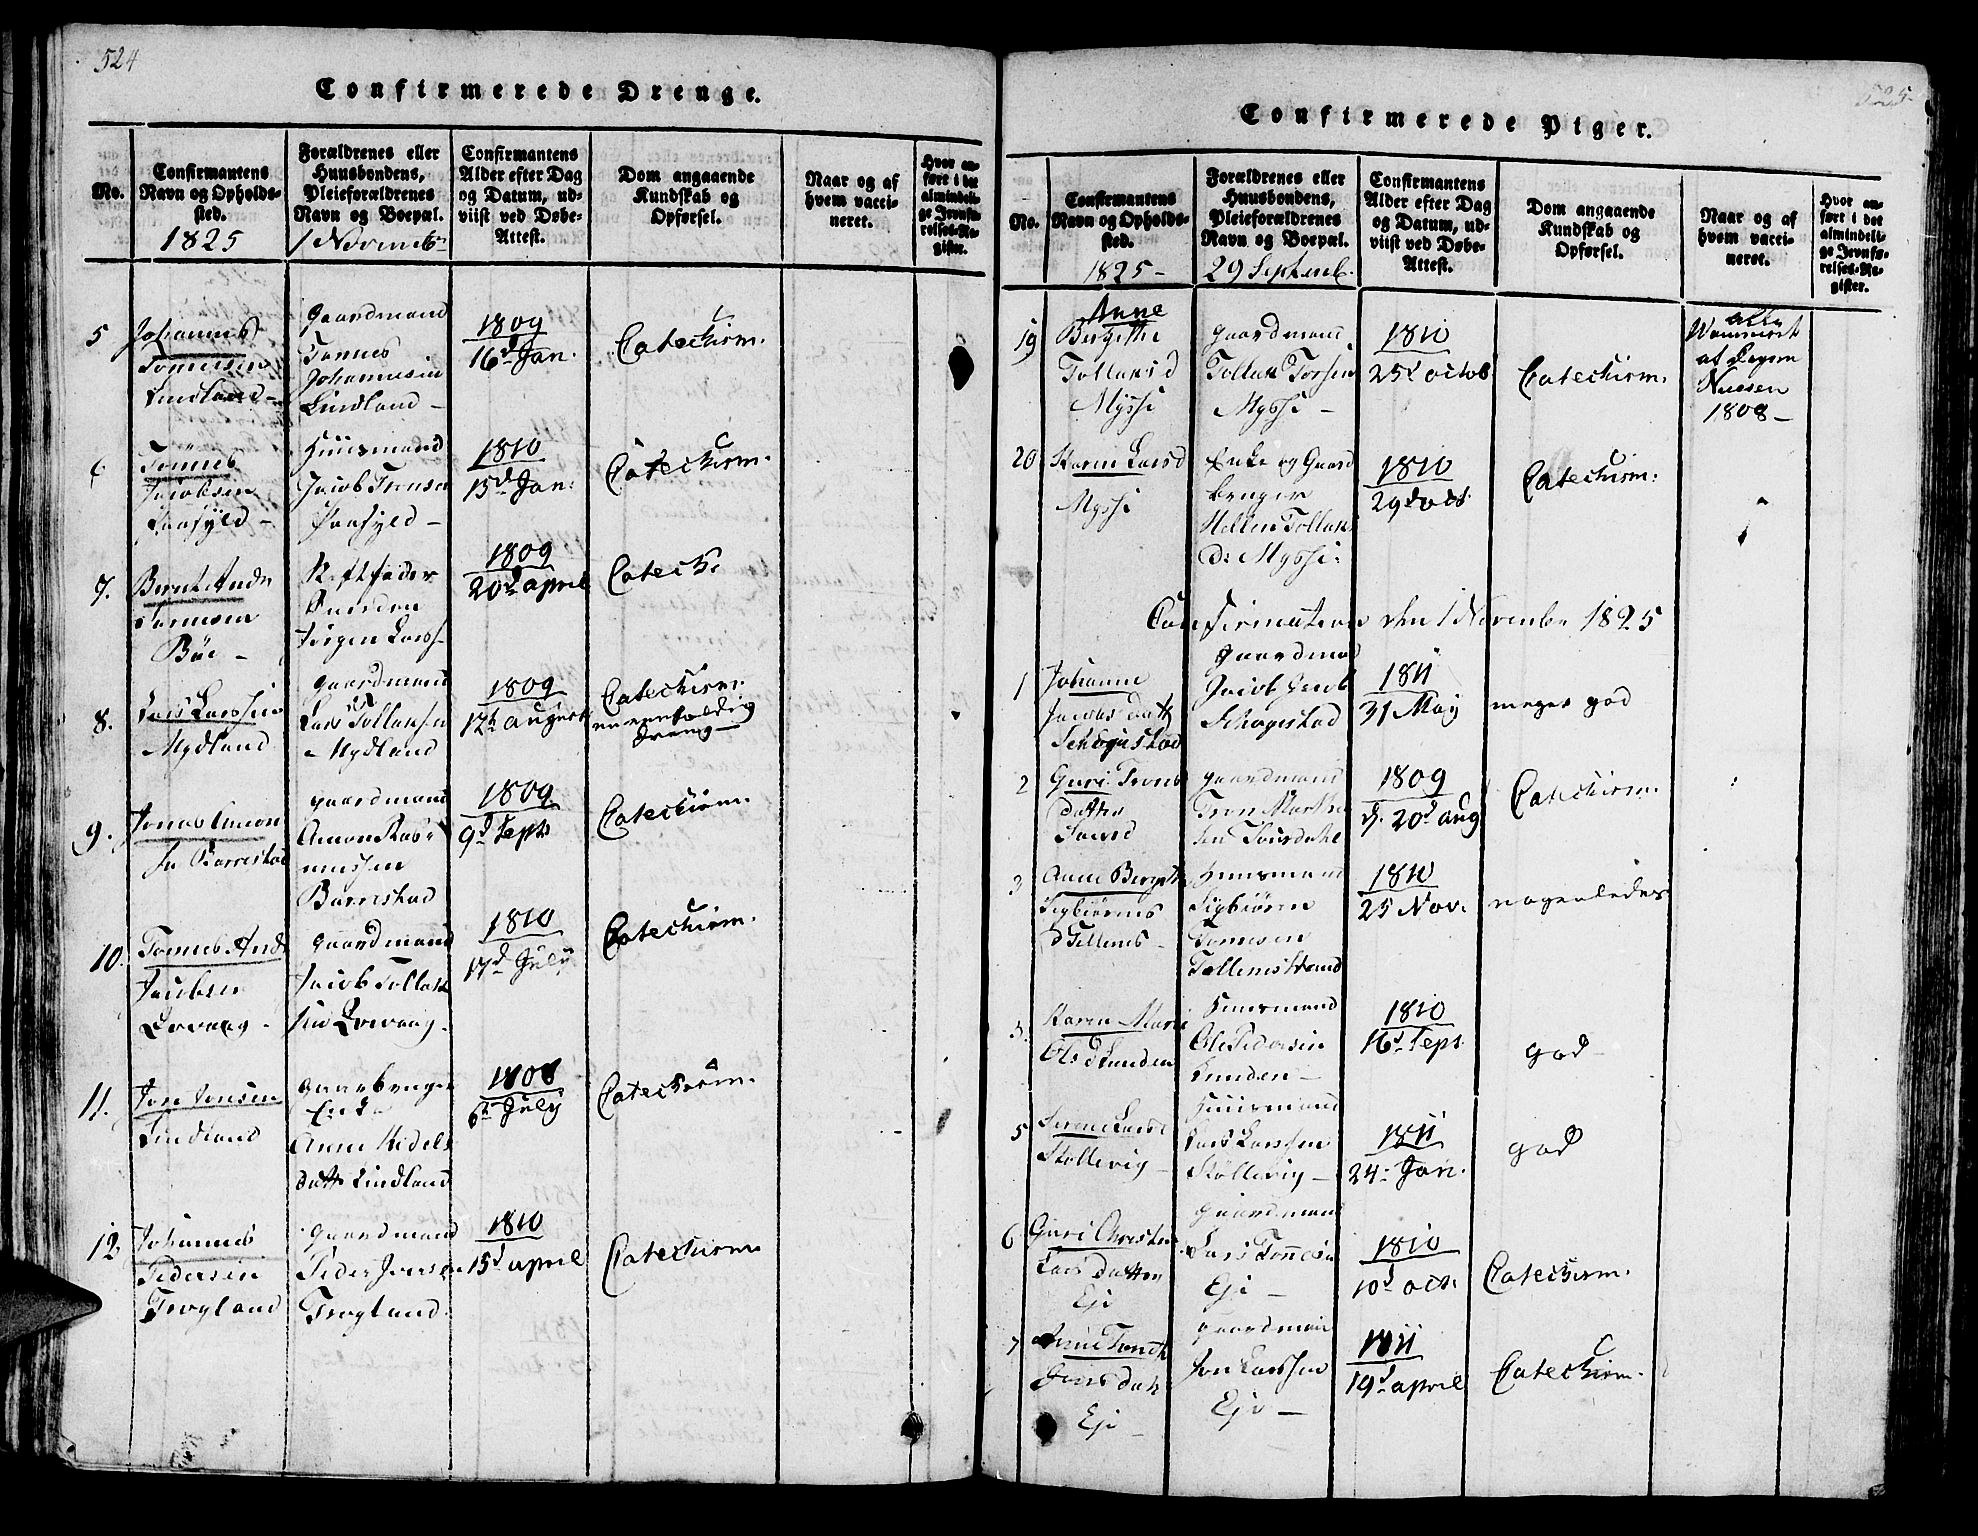 524
Confirmerede Drenge.
No.
Confirmantens
Navn og Opholds-
sted.
1825
Forældrenes eller
Huusbondens,
Pleieforældrenes
Navn og Boepæl.
1 Novemb
Confirmantens
Alder efter Dag
og Datum, ud-
viist ved Døbe-
Attest.
Dom angaaende
Kundskab og
Opførsel.
Naar og af
hvem vacci-
neret.
Hvor an-
ført i det
almindeli-
ge Jevnfø-
relses-Re-
gister.
5
Johannes
Tønnesen
Lindland
Gaardmand
Tønnes
Johannesen
Lindland
1809
16d Jan.
Catechism.
Tønnes
Jacobsen
Huusmand
Jacob
1810
15d Jan.
Catechism.
7.
Bernt Andr
Tønnesen
Bøe
Jørgen Lars
1809
20d april
Catech.
8.
Lars Larssen
Mydland
gaardmand
Lars Tollaksen
Mydland
1809
12te august
Catechism.
en eenfoldig
dreng
9.
Jonas Amon
sen Barrestad
gaardmand
Amon Ras-
mussen
Barrestad
1809
9d Septb
Catechism.
10.
Tønnes Andr
Jacobsen
gaardmand
Jacob Tollak
sen
1810
17d July
Catechism.
11.
Jon Jonsen
Lindland
Enke
Anne
datt Lindland
1808
6te July
Catechism.
12
Johannes
Pedersen
Frøyland
Gaardmand
Peder Iversen
Frøyland
1810
15d april
Catechism.
525.
Confirmerede Piger.
No.
Confirmantens
Navn og Opholds-
sted.
1825
Forældrenes eller
Huusbondens,
Pleieforældrenes
Navn og Boepæl.
29 Septemb.
Confirmantens
Alder efter Dag
og Datum, ud-
viist ved Døbe-
Attest.
Dom angaaende
Kundskab og
Opførsel.
Naar og af
hvem vacci-
neret.
Hvor an-
ført i det
almindeli-
ge Jevnfø-
relses-Re-
gister.
19
Anne
Bergithe
Tollaksd
Myssi
gaardmand
Tollak
Myssi
1810
25d octob
Catechism.
af
1808
20
Karen Larsd
Myssi
Enke og Gaard
bruger
Tollaks
d: Myssi.
1810
29d oct
Catechism.
Confirmation den 1 November 1825
1
Johanne
Jacobs datt
Schogestad
gaardmand
Jacob
Schogestad
1811
31 May
meget god
2
Guri Trons
datter
gaardmand
Tron
1809
d. 20d aug
Catechism.
3
Anne Bergith
Sigbiørns
d Tellenes
Huusmand
Sigbiørn
Tønnesen
Tellenes
1810
25 Nov.
nogenledes
Karen Marie
Ols d Lunden
Huusmand
Ole Pedersen
Lunden
1810
16d Sept
god
5
Larsd
Støllevig
Huusmand
Lars Larssen
Støllevig
1811
24 Jan.
god
6
Guri
Lars datter
Eji
gaardmand
Lars Tønnesen
Eji
1810
10d oct.
Catechism.
7
Jons datt
Eji
gaardman
Jon Larssen
Eji
1811
19d april
Catechism.